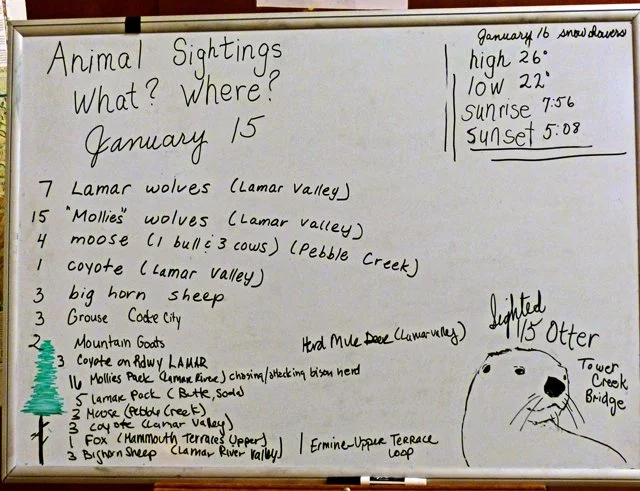 Animal Sightings
What? Where?
January 15
January 16 snow showers
high 26°
low 22°
sunrise 7:56
sunset 5:08
7 Lamar wolves (Lamar Valley)
15 "Mollies" wolves (Lamar valley)
4 moose (1 bull & 3 cows) (Pebble Creek)
1 coyote (Lamar Valley)
3 big horn sheep
3 Grouse Cooke City
2 Mountain Goats
Herd Mule Deer (Lamar valley)
3 Coyote on Rdwy LAMAR
16 Mollies Pack (Lamar River) chasing/attacking bison herd
5 Lamar Pack (Butte, Soda)
2 Moose (Pebble Creek)
3 Coyote (Lamar Valley)
1 Fox (Mammouth Terraces Upper)
3 Bighorn Sheep (Lamar River Valley)
1 Ermine-Upper Terrace
Loop
Sighted
1/5 Otter
Tower
Creek
Bridge